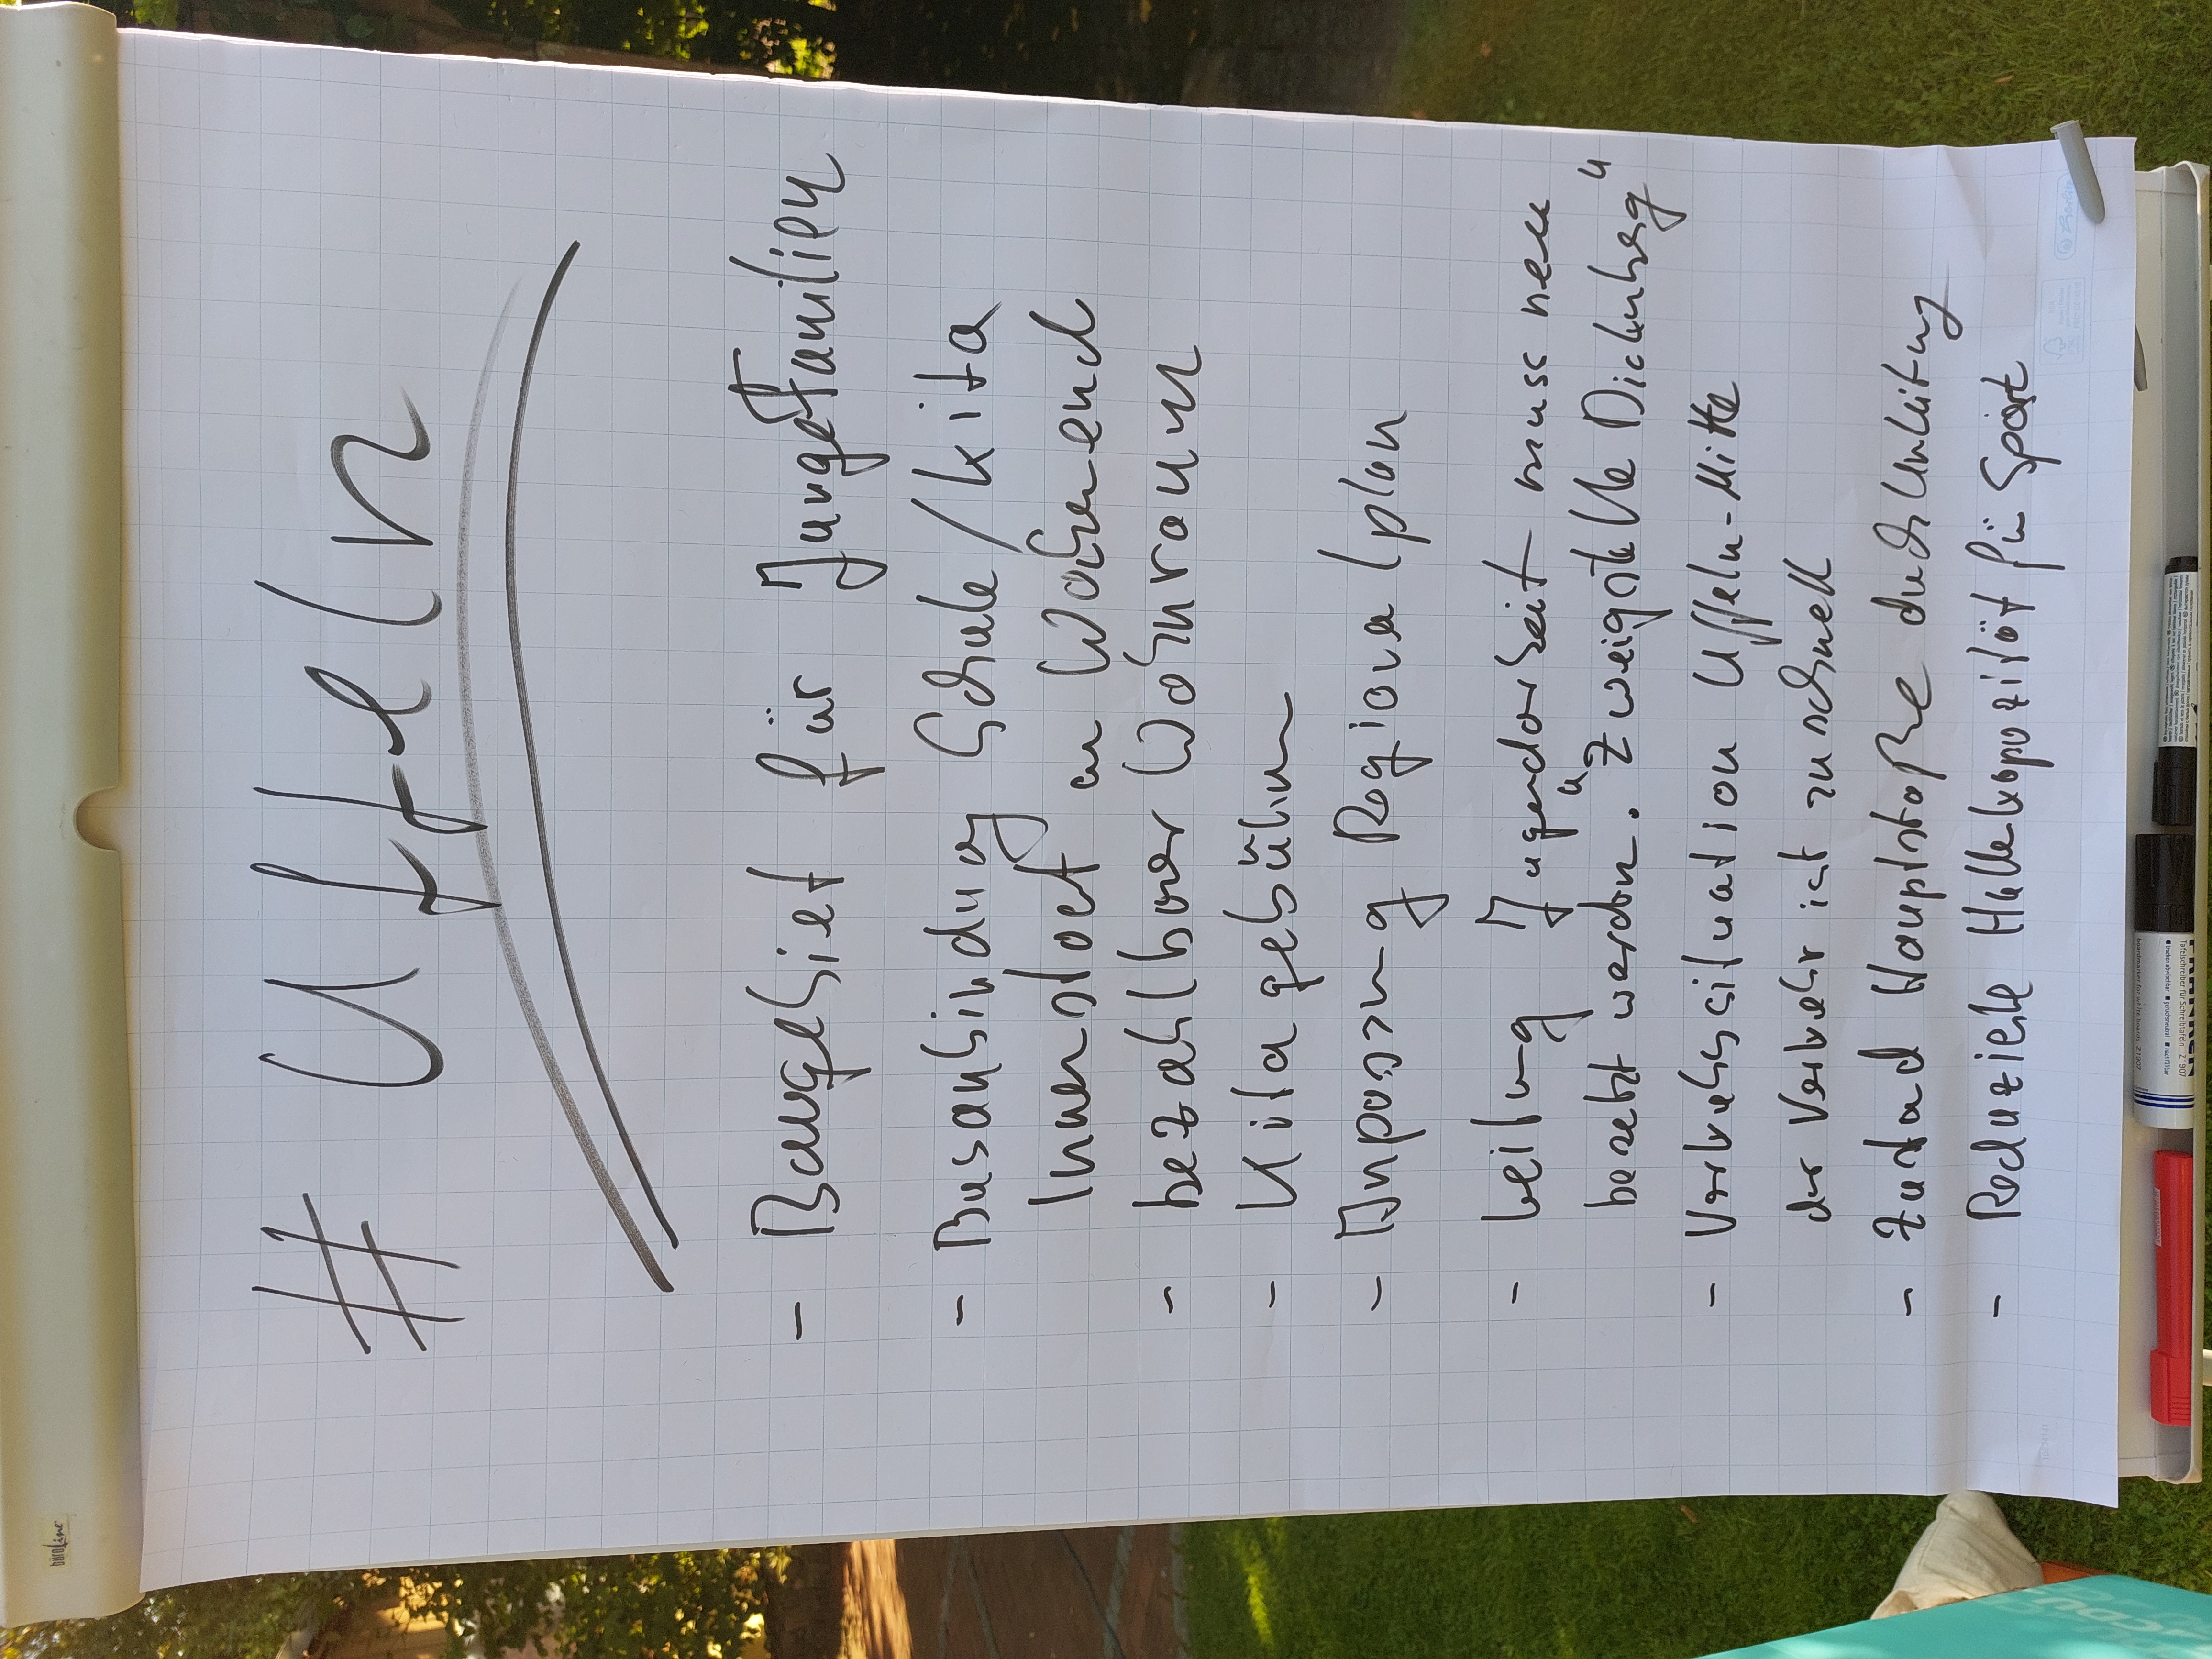 # Uffeln
- Baugebiet für Junge Familien
- Busanbindung Schule/Kita
Innenstadt am Wochenend
- bezahlbarer Wohnraum
- Kitagebühren
- Anpassung Regionalplan
- Leitung Jugendarbeit muss neu
besetzt werden. "Zweigstelle Dickenberg"
- Verkehrssituation Uffeln-Mitte
der Verkehr ist zu schnell
- Zustand Hauptstraße durch Umleitung
- Reduzierte Hallenkapazität für Sport
büroline